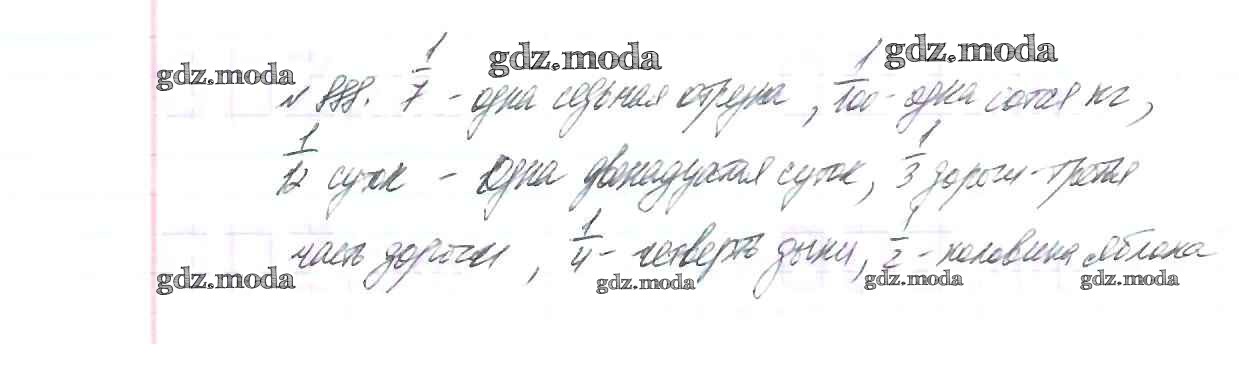 gdz.moda gdz.moda gdz.moda
№ 888. 1/7 - одна седьмая отрезка, 1/100 - одна сотая кг,
1/12 суток - одна двенадцатая суток, 1/3 дороги - третья
часть дороги, 1/4 - четверть дыни, 1/2 - половина яблока
gdz.moda gdz.moda gdz.moda gdz.moda